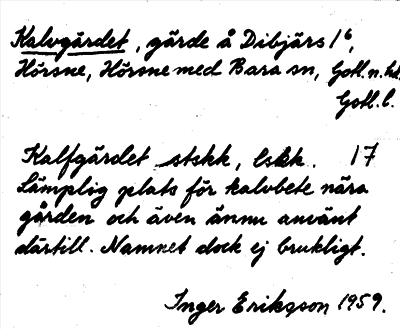 Kalvgärdet, gärde å Dibjärs 1⁶,
Hörsne, Hörsne med Bara sn, Gotl.n.hd,
Gotl.l.
Kalfgärdet stskk, lskk. 17
Lämplig plats för kalvbete nära
gården och även ännu använt
därtill. Namnet dock ej brukligt.
Inger Eriksson 1959.